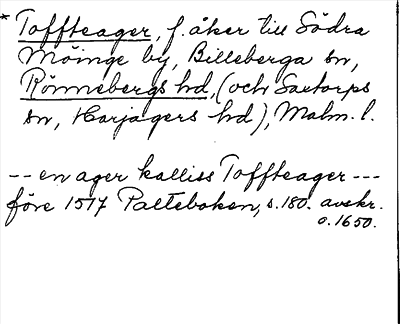 * Toffteager, f. åker till Södra
Möinge by, Billeberga sn,
Rönnebergs hd, (och Saxtorps
sn, Harjagers hd), Malm. l.
-- en ager kalliss Toffteager ---
före 1517 Palteboken, s. 180. avskr.
o. 1650.